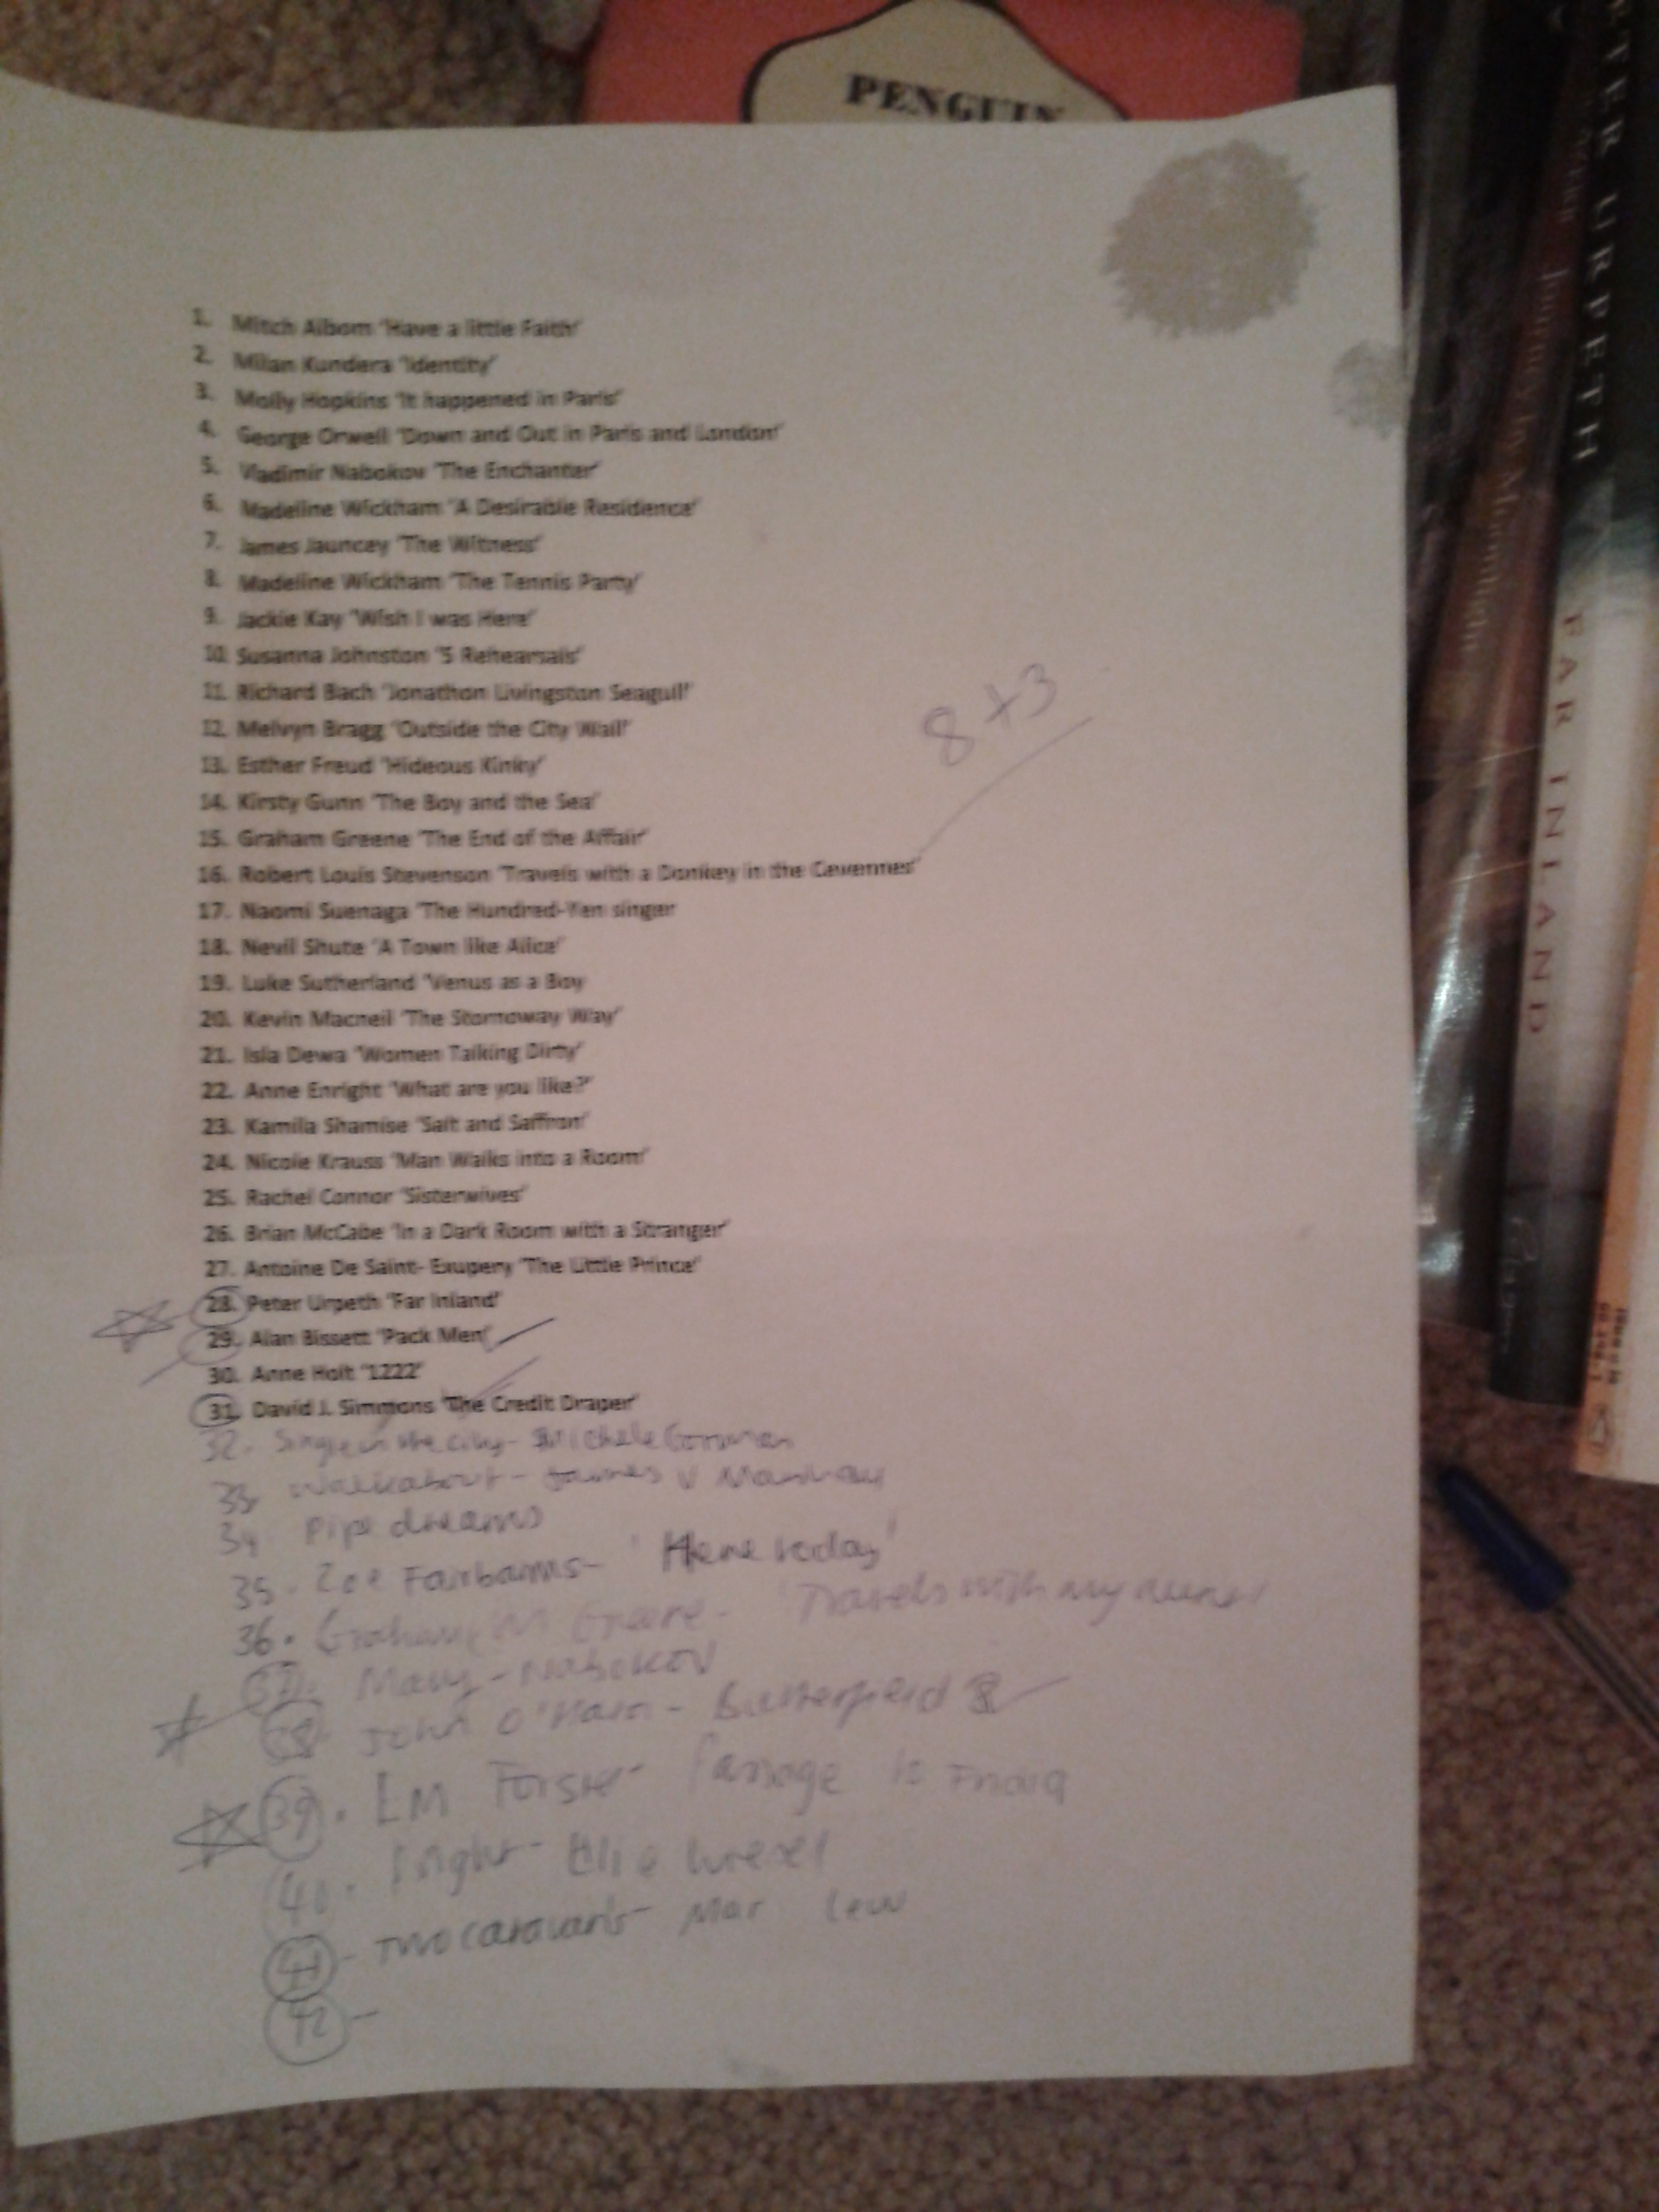 PENGUIN
1. Mitch Albom 'Have a little Faith'
2. Milan Kundera 'Identity'
3. Molly Hopkins 'It happened in Paris'
4. George Orwell 'Down and Out in Paris and London'
5. Vladimir Nabokov 'The Enchanter'
6. Madeline Wickham 'A Desirable Residence'
7. James Jauncey 'The Witness'
8. Madeline Wickham 'The Tennis Party'
9. Jackie Kay 'Wish I was Here'
10. Susanna Johnston '5 Rehearsals'
11. Richard Bach 'Jonathon Livingston Seagull'
12. Melvyn Bragg 'Outside the City Wall'
8 + 3
13. Esther Freud 'Hideous Kinky'
14. Kirsty Gunn 'The Boy and the Sea'
15. Graham Greene 'The End of the Affair'
16. Robert Louis Stevenson 'Travels with a Donkey in the Cevennes'
17. Naomi Suenaga 'The Hundred-Yen singer
18. Nevil Shute 'A Town like Alice'
19. Luke Sutherland 'Venus as a Boy
20. Kevin Macneil 'The Stornoway Way'
21. Isla Dewa 'Women Talking Dirty'
22. Anne Enright 'What are you like?'
23. Kamila Shamise 'Salt and Saffron'
24. Nicole Krauss 'Man Walks into a Room'
25. Rachel Connor 'Sisterwives'
26. Brian McCabe 'In a Dark Room with a Stranger'
27. Antoine De Saint- Exupery 'The Little Prince'
28. Peter Urpeth 'Far Inland'
29. Alan Bissett 'Pack Men'
30. Anne Holt '1222'
31. David J. Simmons 'The Credit Draper'
32. Single in the city - Michele Gorman
33 Walkabout - James V Marshall
34 Pipe dreams
35. Zoe Fairbairns - 'Here today'
36. Graham Greene - 'Travels with my aunt'
37. Mary - Nabokov
38 John O'Hara - Butterfield 8
39. EM Forster Passage to India
40. Night - Elie Wiesel
41 - Two caravans - Mar Lew
42 -
PETER URPETH
FAR INLAND
Journey by Moonlight